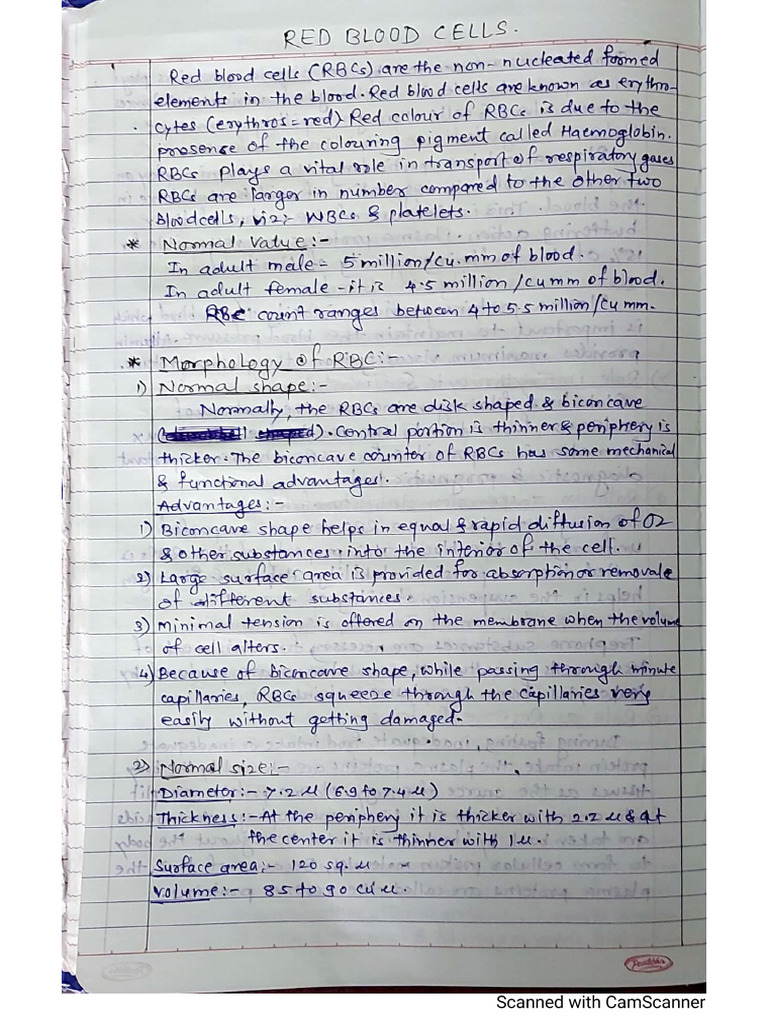 RED BLOOD CELLS.
Red blood cells (RBCs) are the non-nucleated formed
elements in the blood. Red blood cells are known as erythro-
cytes (erythros = red). Red colour of RBCs is due to the
presense of the colouring pigment called Haemoglobin.
RBCs plays a vital role in transport of respiratory gases
RBCs are larger in number compared to the other two
Bloodcells, viz:- WBCs & platelets.
* Normal value:-
In adult male = 5 million/cu.mm of blood.
In adult female - it is 4.5 million/cu mm of blood.
RBC count ranges between 4 to 5.5 million/cu mm.
* Morphology of RBC:-
1) Normal shape:-
Normally, the RBCs are disk shaped & biconcave
( ). Central portion is thinner & periphery is
thicker. The biconcave counter of RBCs has some mechanical
& functional advantages.
Advantages:-
1) Biconcave shape helps in equal & rapid diffusion of O2
& other substances into the interior of the cell.
2) Large surface area is provided for absorption or removale
of different substances.
3) Minimal tension is offered on the membrane when the volume
of cell alters.
4) Because of biconcave shape, while passing through minute
capillaries, RBCs squeeze through the capillaries very
easily without getting damaged.
2) Normal size:-
Diameter:- 7.2 µ (6.9 to 7.4 µ)
Thickness:- At the periphery it is thicker with 2.2 µ & at
the center it is thinner with 1 µ.
Surface area:- 120 sq. µ
Volume:- 85 to 90 cu µ.
Scanned with CamScanner